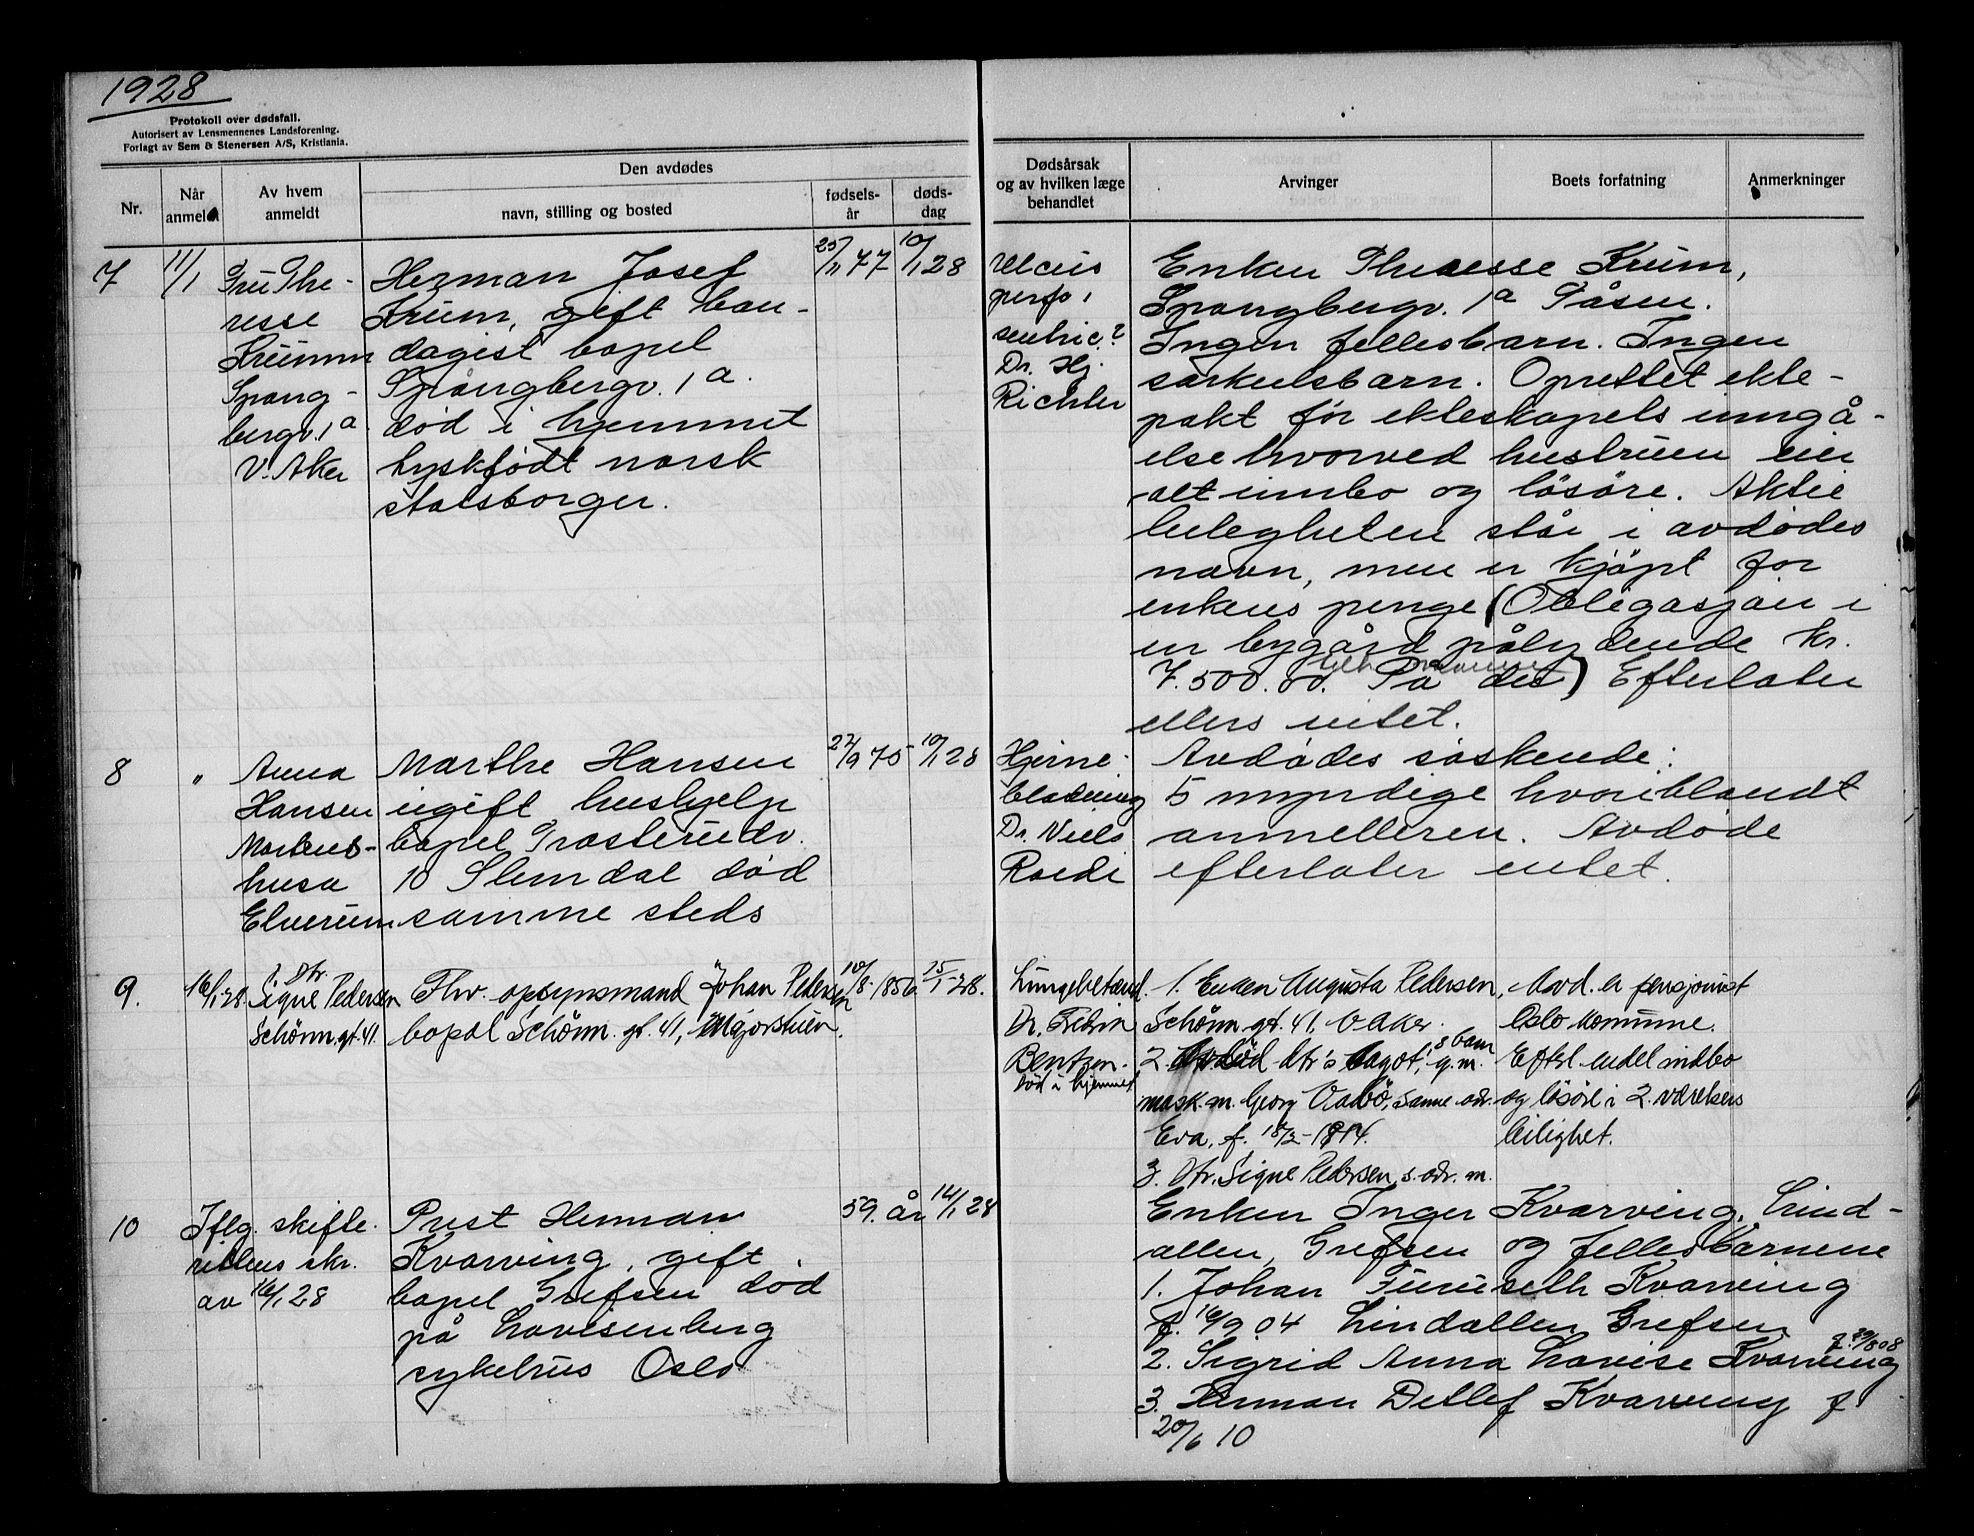 1928
Protokoll over dødsfall.
Autorisert av Lensmennenes Landsforening.
Forlagt av Sem & Stenersen A/S, Kristiania.
Nr.
Når anmeldt
Av hvem anmeldt
Den avdødes
navn, stilling og bosted
fødsels-år
døds-dag
Dødsårsak og av hvilken læge behandlet
Arvinger
Boets forfatning
Anmerkninger
7
11/1
Fru The-
resse
Krumm
Spang-
bergv. 1a
V. Aker
Herman Josef
Krum, gift ban-
dagist bopel
Spångbergv. 1a.
død i hjemmet
tyskfødt norsk
statsborger.
25/11 77
10/1 28
Ulcus
perfo,
Dr. Hj.
Richter
Enken Theresse Krum,
Spangbergv. 1a Tåsen.
Ingen fellesbarn. Ingen
særkulsbarn. Oprettet ekte-
pakt før ekteskapets inngå-
else hvorved hustruen eier
alt innbo og løsøre. Aktie
leiligheten står i avdødes
navn, men er kjøpt for
enkens penge (Obligasjon i
en bygård pålydende kr.
7.500.00. På det) Efterlater
ellers intet.
8
"
Anna
Hansen
Martens-
husa
Elverum
Marthe Hansen
ugift hushjelp
bopel Trosterudv.
10 Slemdal død
samme steds
22/9 75
10/1 28
Hjerne-
blødning
Dr. Niels
Roede
Avdødes søskende:
5 myndige hvoriblandt
anmelderen. Avdøde
efterlater intet.
9.
16/1 28.
Dtr.
Signe Pedersen
Schønn.gt. 41.
Fhv. opsynsmand Johan Pedersen
bopal Schønn. gt. 41, Majorstuen.
10/8-1856.
15/1-28.
Lungebetænd.
Dr. Fredrik
Bentzen.
død i hjemmet
1. Enken Augusta Pedersen,
Schønn. gt. 41, V Aker.
2. Avdød dtr's Dagot, s barn g.m.
mask.m. Georg Vabö, samme adr.
Eva, f. 18/2-1914.
3. Dtr. Signe Pedersen, s. adr. m.
Avd. er pensjonist
Oslo komune.
Efterl. endel indbo
og løsøre i 2 værelsers
leilighet.
10
Iflg. skifte-
rettens skr.
av 16/1 28
Prest Herman
Kvarving, gift,
bopel Grefsen død
på Lovisenberg
sykehus Oslo
59. år
14/1 28
Enken Inger Kvarving, Lind-
alleen, Grefsen og fellesbarnene
1. Johan Furuseth Kvarving
f. 16/9 04 Lindalleen Grefsen
2. Sigrid Anna Lovise Kvarving f. 29/8 08
3. Herman Detlef Kvarving f
20/6 10